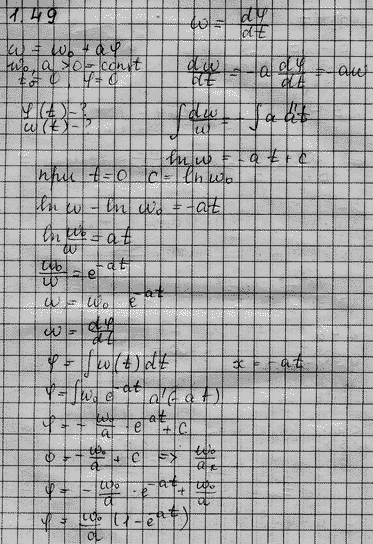 1.49
ω = dφ/dt
ω = ω₀ + aφ
ω₀, a > 0 = const
t₀ = 0, φ = 0
dω/dt = -a dφ/dt = -aω
φ(t) - ?
ω(t) - ?
∫ dω/ω = - ∫ a dt
ln ω = -at + c
при t = 0 c = ln ω₀
ln ω - ln ω₀ = -at
ln ω₀/ω = at
ω₀/ω = e^{-at}
ω = ω₀ e^{-at}
ω = dφ/dt
φ = ∫ω(t) dt x = -at
φ = ∫ω₀ e^{-at} a'(-at)
φ = - ω₀/a · e^{-at} + c
0 = - ω₀/a + c => ω₀/a
φ = - ω₀/a · e^{-at} + ω₀/a
φ = ω₀/a (1 - e^{-at})